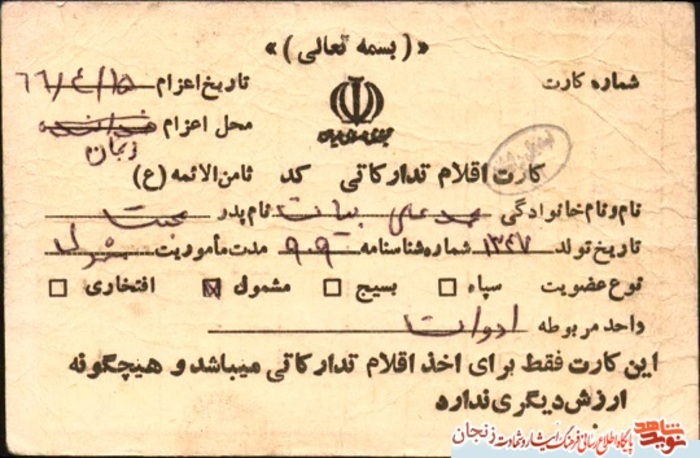 «(بسمه تعالی)»
شماره کارت
تاریخ اعزام ۶۶/۴/۱۵
محل اعزام
زنجان
کارت اقلام تدارکاتی کد ثامن الائمه (ع)
نام و نام خانوادگی محمد علی بیات نام پدر محبت
تاریخ تولد ۱۳۴۷ شماره شناسنامه ۹۰۹ مدت مأموریت
نوع عضویت سپاه □ بسیج □ مشمول ☒ افتخاری □
واحد مربوطه ادوات
این کارت فقط برای اخذ اقلام تدارکاتی میباشد و هیچگونه
ارزش دیگری ندارد
نوید شاهد
پایگاه اطلاع رسانی فرهنگ ایثار و شهادت زنجان